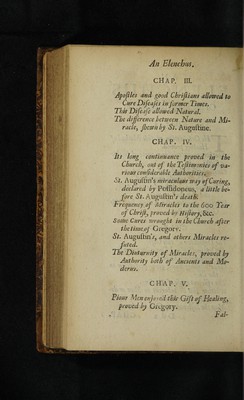 An Elenchus.
CHAP. III.
Apostles and good Christians allowed to
Cure Diseases in former Times.
This Disease allowed Natural.
The difference between Nature and Mi-
racle, shewn by St. Augustine.
CHAP. IV.
Its long continuance proved in the
Church, out of the Testimonies of va-
rious considerable Authorities.
St. Augustin's miraculous way of Curing,
declared by Possidonius, a little be-
fore St. Augustin's death.
Frequency of Miracles to the 600 Year
of Christ, proved by History, &c.
Some Cures wrought in the Church after
the time of Gregory.
St. Augustin's, and others Miracles re-
futed.
The Diuturnity of Miracles, proved by
Authority both of Ancients and Mo-
derns.
CHAP. V.
Pious Men enjoyed this Gift of Healing,
proved by Gregory.
Fal-